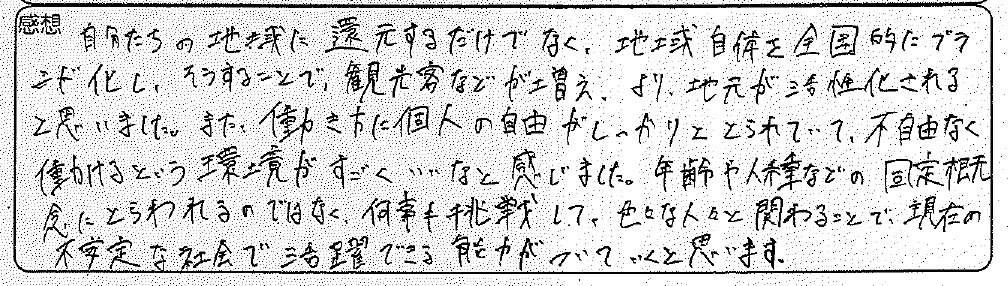 感想
自分たちの地域に還元するだけでなく、地域自体を全国的にブラ
ンド化し、そうすることで、観光客などが増え、より、地元が活性化される
と思いました。また、働き方に個人の自由がしっかりととられていて、不自由なく
働けるという環境がすごくいいなと感じました。年齢や人種などの固定概
念にとらわれるのではなく、何事も挑戦して、色々な人々と関わることで、現在の
不安定な社会で活躍できる能力がついていくと思います。